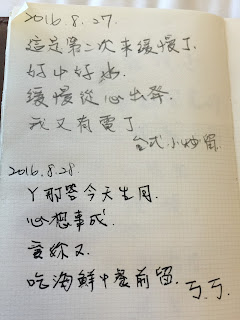 2016.8.27.
這是第二次來緩慢了.
好山好水.
緩慢從心出發.
我又有電了
台式小炒留.
2016.8.28.
ㄚ那答今天生日.
心想事成.
吃海鮮中餐前留.
ㄎ.ㄎ.